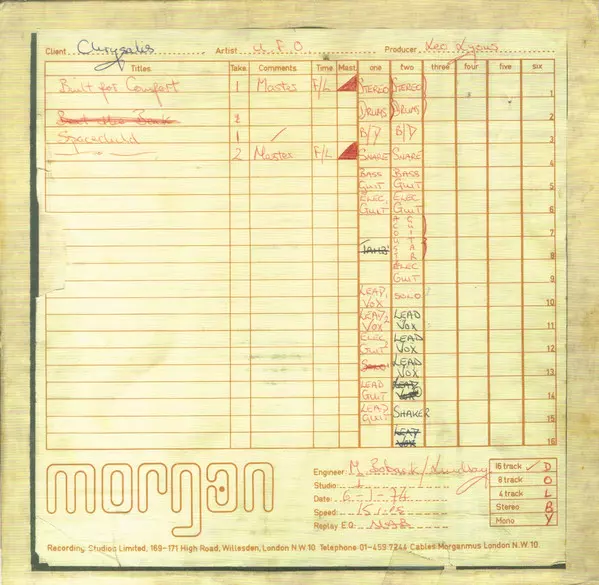 Client Chrysalis Artist U.F.O Producer Leo Lyons
Titles Take Comments Time Mast. one two three four five six
Built for Comfort 1 Master F/L STEREO STEREO 1
2 DRUMS DRUMS 2
Spacechild 1 ✓ B/D B/D 3
2 Master F/L SNARE SNARE 4
BASS GUIT BASS GUIT 5
ELEC. GUIT ELEC GUIT 6
ACOUSTIC GUITAR 7
TAMB 8
ELEC GUIT 9
LEAD, VOX SOLO 10
LEAD 2 VOX LEAD VOX 11
ELEC GUIT LEAD VOX 12
SOLO LEAD VOX 13
LEAD GUIT LEAD VOX 14
LEAD GUIT SHAKER 15
LEAD VOX 16
morgan
Engineer:
Studio: 1
Date: 6-1-74
Speed: 15 I.P.S
Replay EQ: NAB
16 track ✓ D
8 track O
4 track L
Stereo B
Mono Y
Recording Studios Limited, 169-171 High Road, Willesden, London N.W.10. Telephone 01-459 7244 Cables Morganmus London N.W.10.